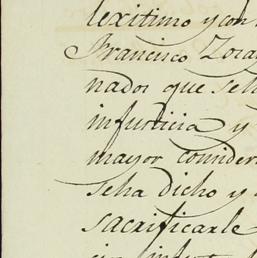 lexitimo y con
Francisco Zora
nados que seh
infusticia y
mayor consider
seha dicho y
sacrificarle